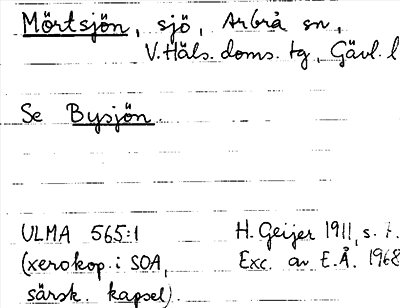 Mörtsjön, sjö, Arbrå sn,
V. Häls. doms. tg, Gävl. l
Se Bysjön.
ULMA 565:1 H. Geijer 1911, s.
(xerokop. i SOA, Exc. av E.Å. 1968
särsk. kapsel).